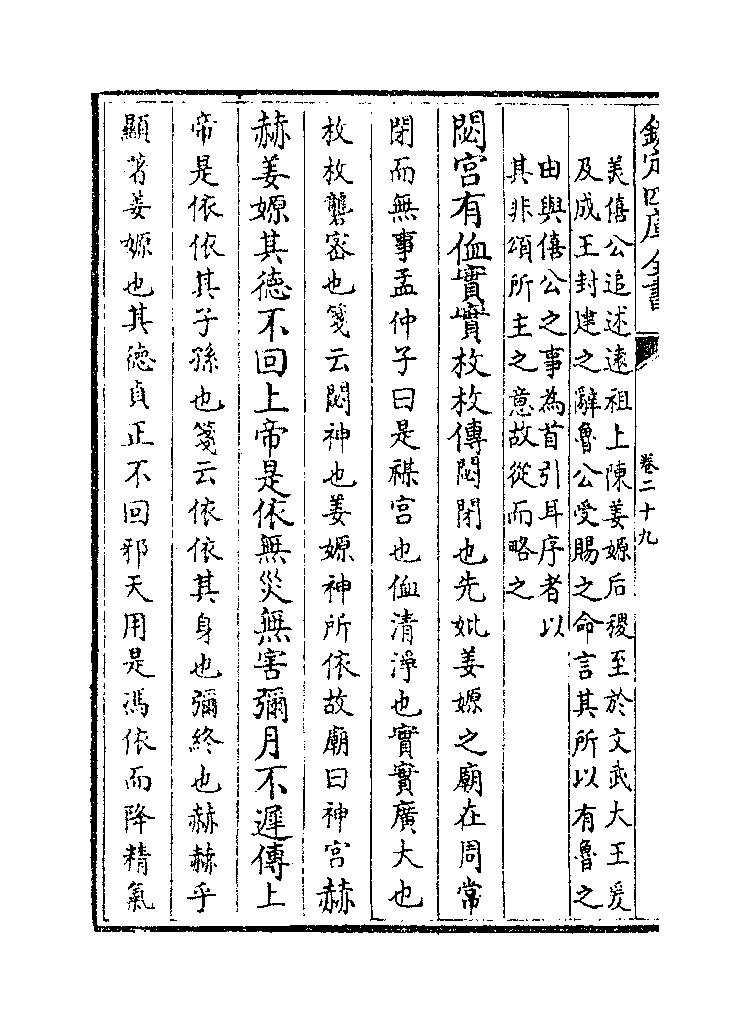 欽定四庫全書
卷二十九
美僖公追述遠祖上陳姜嫄后稷至於文武大王爰
及成王封建之辭魯公受賜之命言其所以有魯之
由與僖公之事為首引耳序者以
其非頌所主之意故從而略之
閟宮有侐實實枚枚傳閟閉也先妣姜嫄之廟在周常
閉而無事孟仲子曰是禖宮也侐清淨也實實廣大也
枚枚礱密也箋云閟神也姜嫄神所依故廟曰神宮赫
赫姜嫄其德不回上帝是依無災無害彌月不遲傳上
帝是依依其子孫也箋云依依其身也彌終也赫赫乎
顯著姜嫄也其德貞正不回邪天用是馮依而降精氣